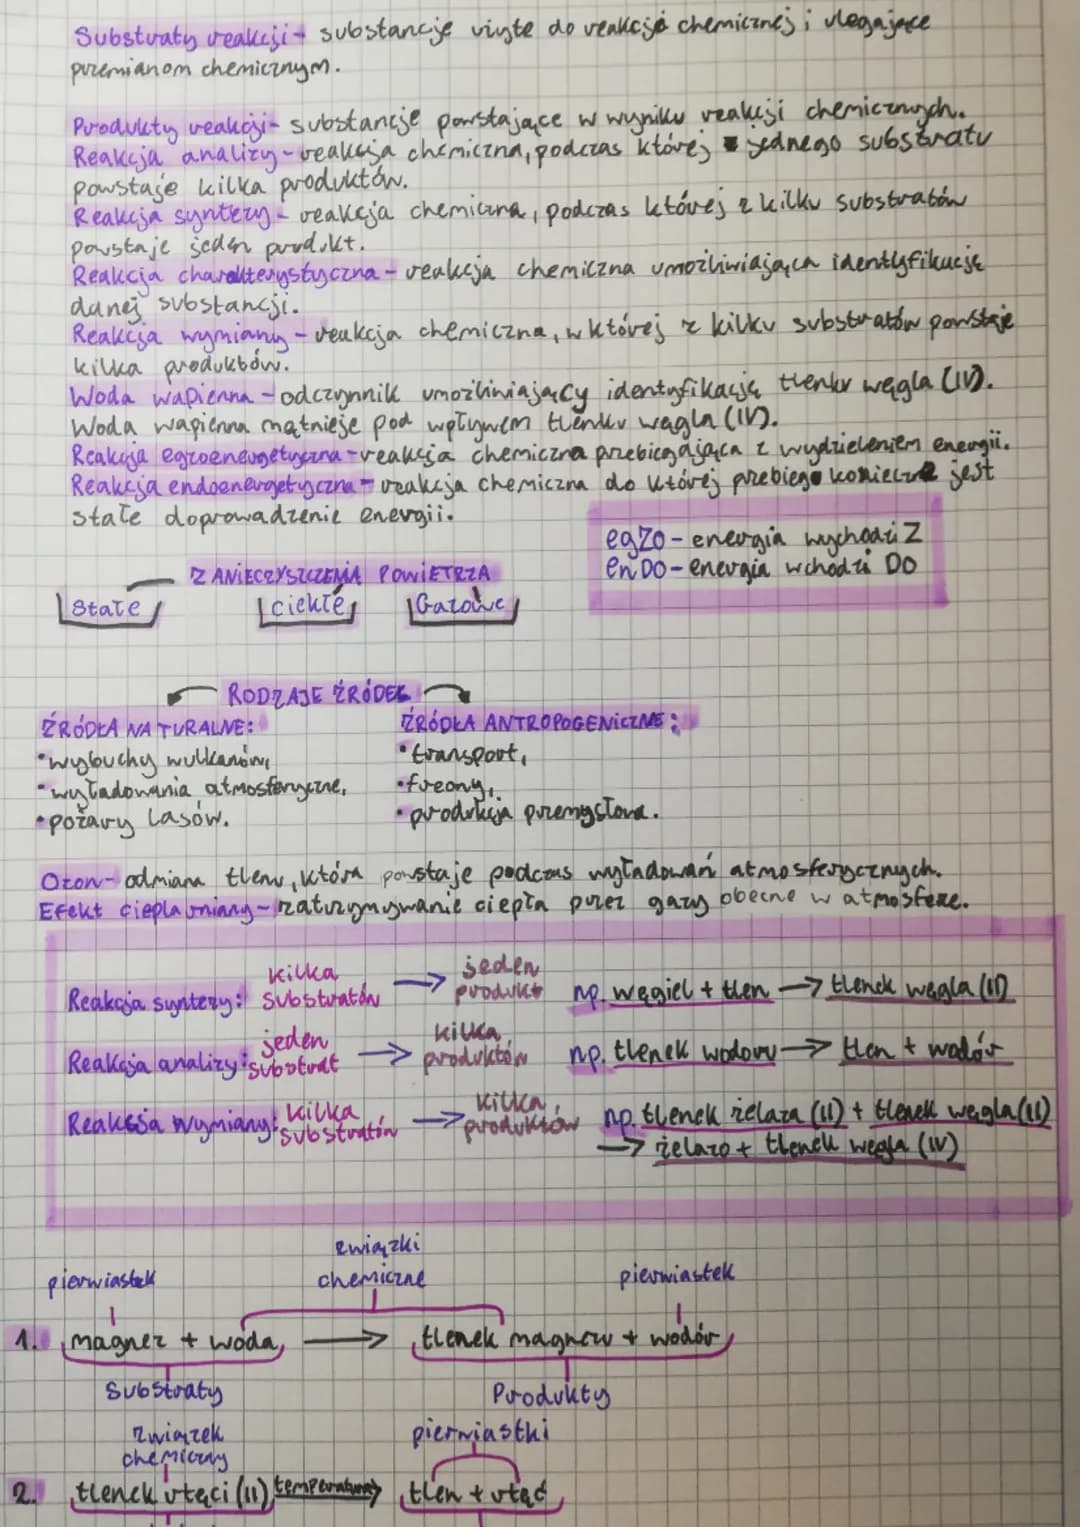 Substraty reakcji - substancje użyte do reakcji chemicznej i ulegające
przemianom chemicznym.
Produkty reakcji - substancje powstające w wyniku reakcji chemicznych.
Reakcja analizy - reakcja chemiczna, podczas której z jednego substratu
powstaje kilka produktów.
Reakcja syntezy - reakcja chemiczna, podczas której z kilku substratów
powstaje jeden produkt.
Reakcja charakterystyczna - reakcja chemiczna umożliwiająca identyfikację
danej substancji.
Reakcja wymiany - reakcja chemiczna, w której z kilku substratów powstaje
kilka produktów.
Woda wapienna - odczynnik umożliwiający identyfikację tlenku węgla (IV).
Woda wapienna mątnieje pod wpływem tlenku węgla (IV).
Reakcja egzoenergetyczna - reakcja chemiczna przebiegająca z wydzieleniem energii.
Reakcja endoenergetyczna - reakcja chemiczna do której przebiegu konieczne jest
stałe doprowadzenie energii.
egZo - energia wychodzi Z
enDo - energia wchodzi DO
ZANIECZYSZCZENIA POWIETRZA
Stałe Ciekłe Gazowe
RODZAJE ŹRÓDEŁ
ŹRÓDŁA NATURALNE: ŹRÓDŁA ANTROPOGENICZNE:
•wybuchy wulkanów, •transport,
•wyładowania atmosferyczne, •freony,
•pożary lasów. •produkcja przemysłowa.
Ozon - odmiana tlenu, która powstaje podczas wyładowań atmosferycznych.
Efekt cieplarniany - zatrzymywanie ciepła przez gazy obecne w atmosferze.
Reakcja syntezy: kilka substratów → jeden produkt np. węgiel + tlen → tlenek węgla (II)
Reakcja analizy: jeden substrat → kilka produktów np. tlenek wodoru → tlen + wodór
Reakcja wymiany: kilka substratów → kilka produktów np. tlenek żelaza (II) + tlenek węgla (II)
→ żelazo + tlenek węgla (IV)
związki
pierwiastek chemiczne pierwiastek
1. magnez + woda → tlenek magnezu + wodór
Substraty Produkty
związek pierwiastki
chemiczny
2. tlenek rtęci (II) temperatura → tlen + rtęć